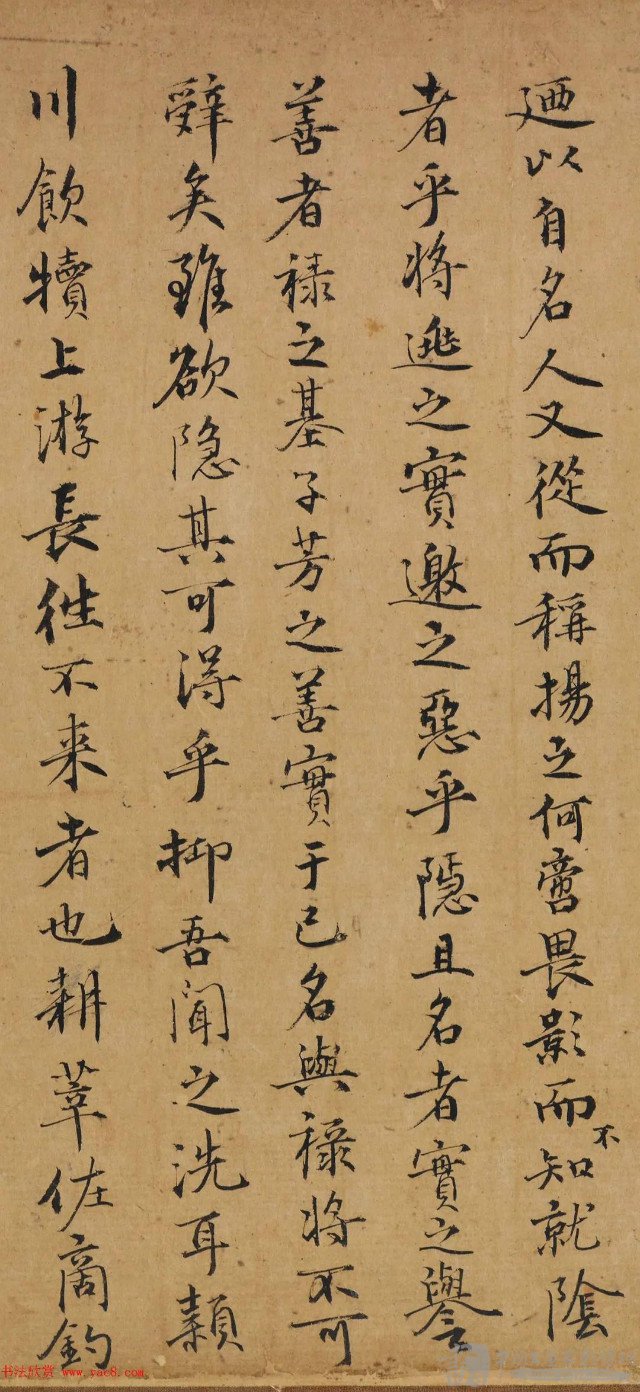 廼以自名人又從而稱揚之何啻畏影而不知就陰
者乎將逃之實邀之惡乎隱且名者實之譽
善者祿之基子芳之善實于己名與祿將不可
辤矣雖欲隐其可得乎抑吾聞之洗耳潁
川飲犢上游長往不来者也耕莘佐商釣
书法欣赏 www.yac8.com